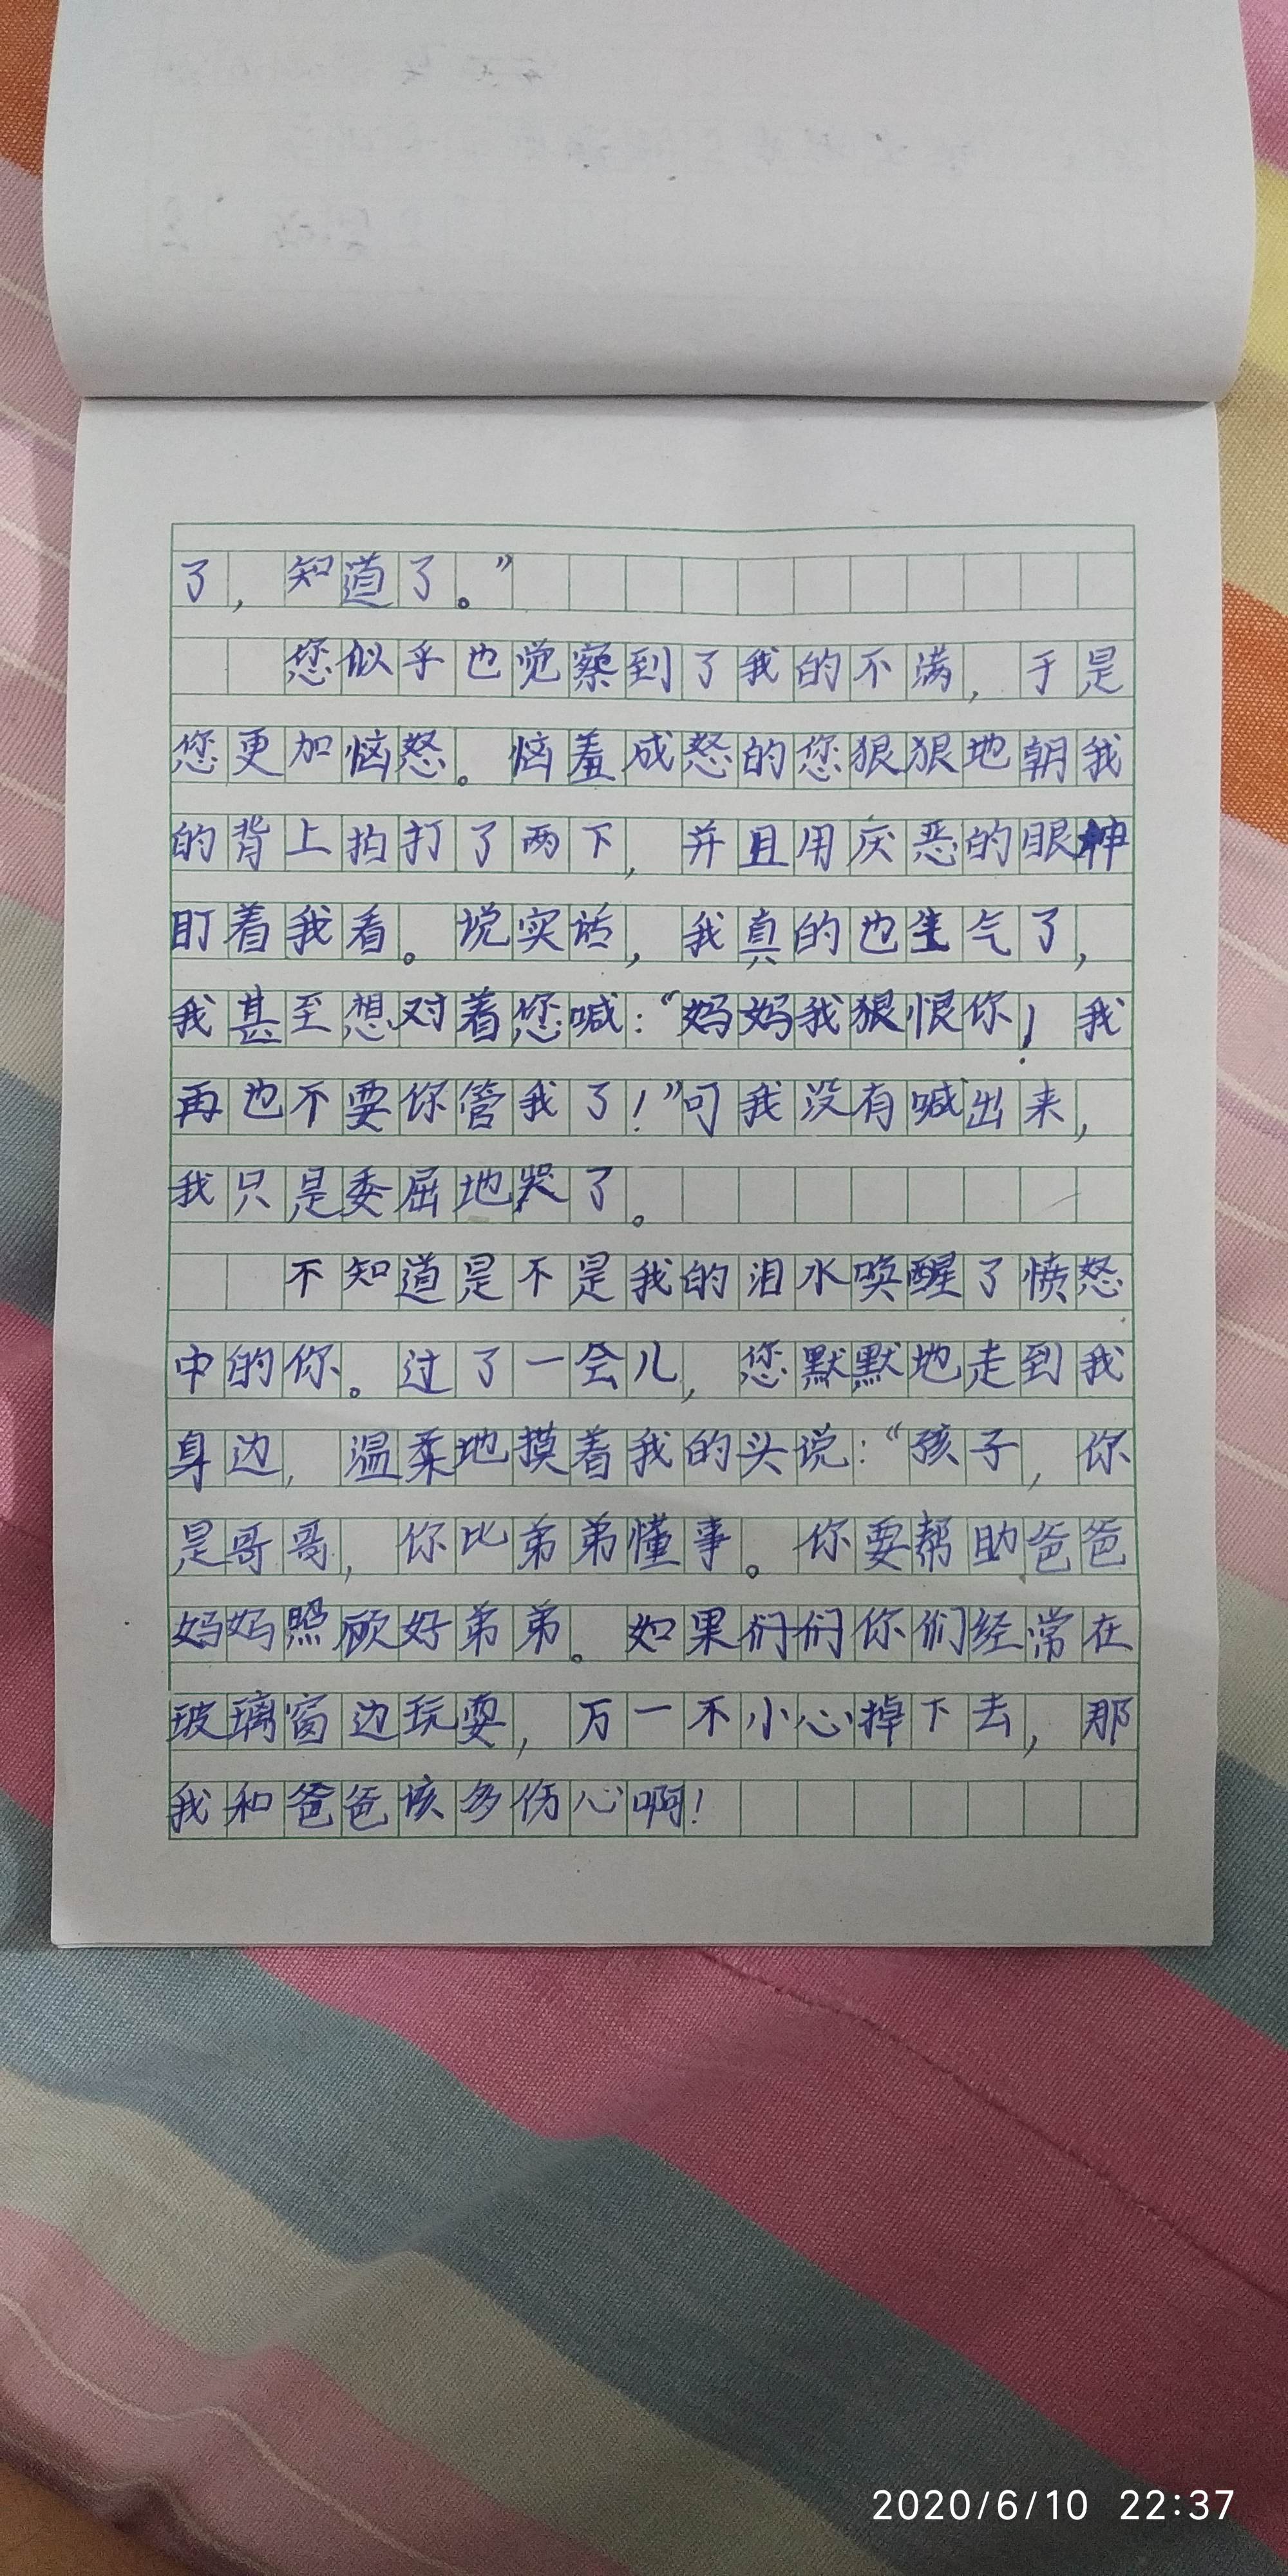 了，知道了。”
您似乎也觉察到了我的不满，于是
您更加恼怒。恼羞成怒的您狠狠地朝我
的背上拍打了两下，并且用厌恶的眼神
盯着我看。说实话，我真的也生气了，
我甚至想对着您喊：“妈妈我狠恨你！我
再也不要你管我了！”可我没有喊出来，
我只是委屈地哭了。
不知道是不是我的泪水唤醒了愤怒
中的你。过了一会儿，您默默地走到我
身边，温柔地摸着我的头说：“孩子，你
是哥哥，你比弟弟懂事。你要帮助爸爸
妈妈照顾好弟弟。如果们们你们经常在
玻璃窗边玩耍，万一不小心掉下去，那
我和爸爸该多伤心啊！
2020/6/10 22:37